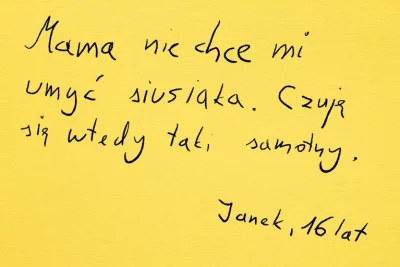 Mama nie chce mi
umyć siusiaka. Czuję
się wtedy taki samotny.
Janek, 16 lat